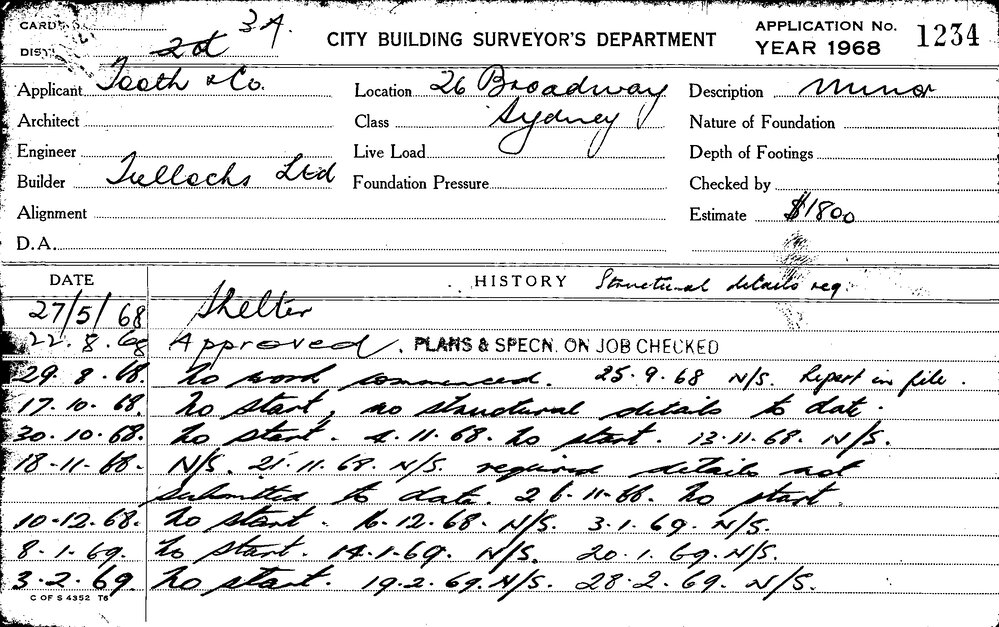 CARD No. 3A.
DIST. 2nd
CITY BUILDING SURVEYOR'S DEPARTMENT
APPLICATION No. 1234
YEAR 1968
Applicant Tooth & Co. Location 26 Broadway Description Minor
Architect Class Sydney Nature of Foundation
Engineer Live Load Depth of Footings
Builder Tullochs Ltd Foundation Pressure Checked by
Alignment Estimate $1800
D.A.
DATE HISTORY Structural details req.
27/5/68 Shelter
22.8.68 Approved. PLANS & SPECN. ON JOB CHECKED
29.8.68. No work commenced. 25.9.68 N/S. Report in file.
17.10.68. No start, no structural details to date.
30.10.68. No start. 4.11.68. No start. 13.11.68. N/S.
18-11-68. N/S. 21.11.68. N/S. required details not
submitted to date. 26-11-68. No start.
10-12-68. No start. 16-12-68. N/S. 3.1.69. N/S.
8.1.69. No start. 14.1.69. N/S. 20.1.69. N/S.
3.2.69. No start. 19.2.69. N/S. 28.2.69. N/S.
C OF S 4352 T6